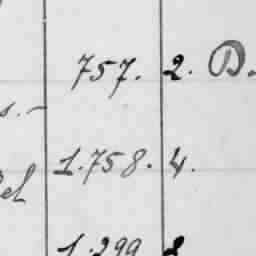 757. 2. D.
s. -
1.758. 4.
el
1.299 8